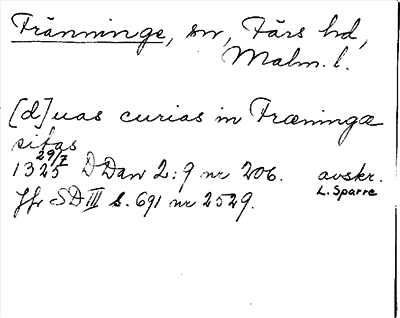 Tränninge, sn, Färs hd,
Malm. l.
[d]uas curias in Træninge
sitas
29/7
1325 DDan 2:9 nr 206. avskr.
L. Sparre
Jfr SD III s. 691 nr 2529.